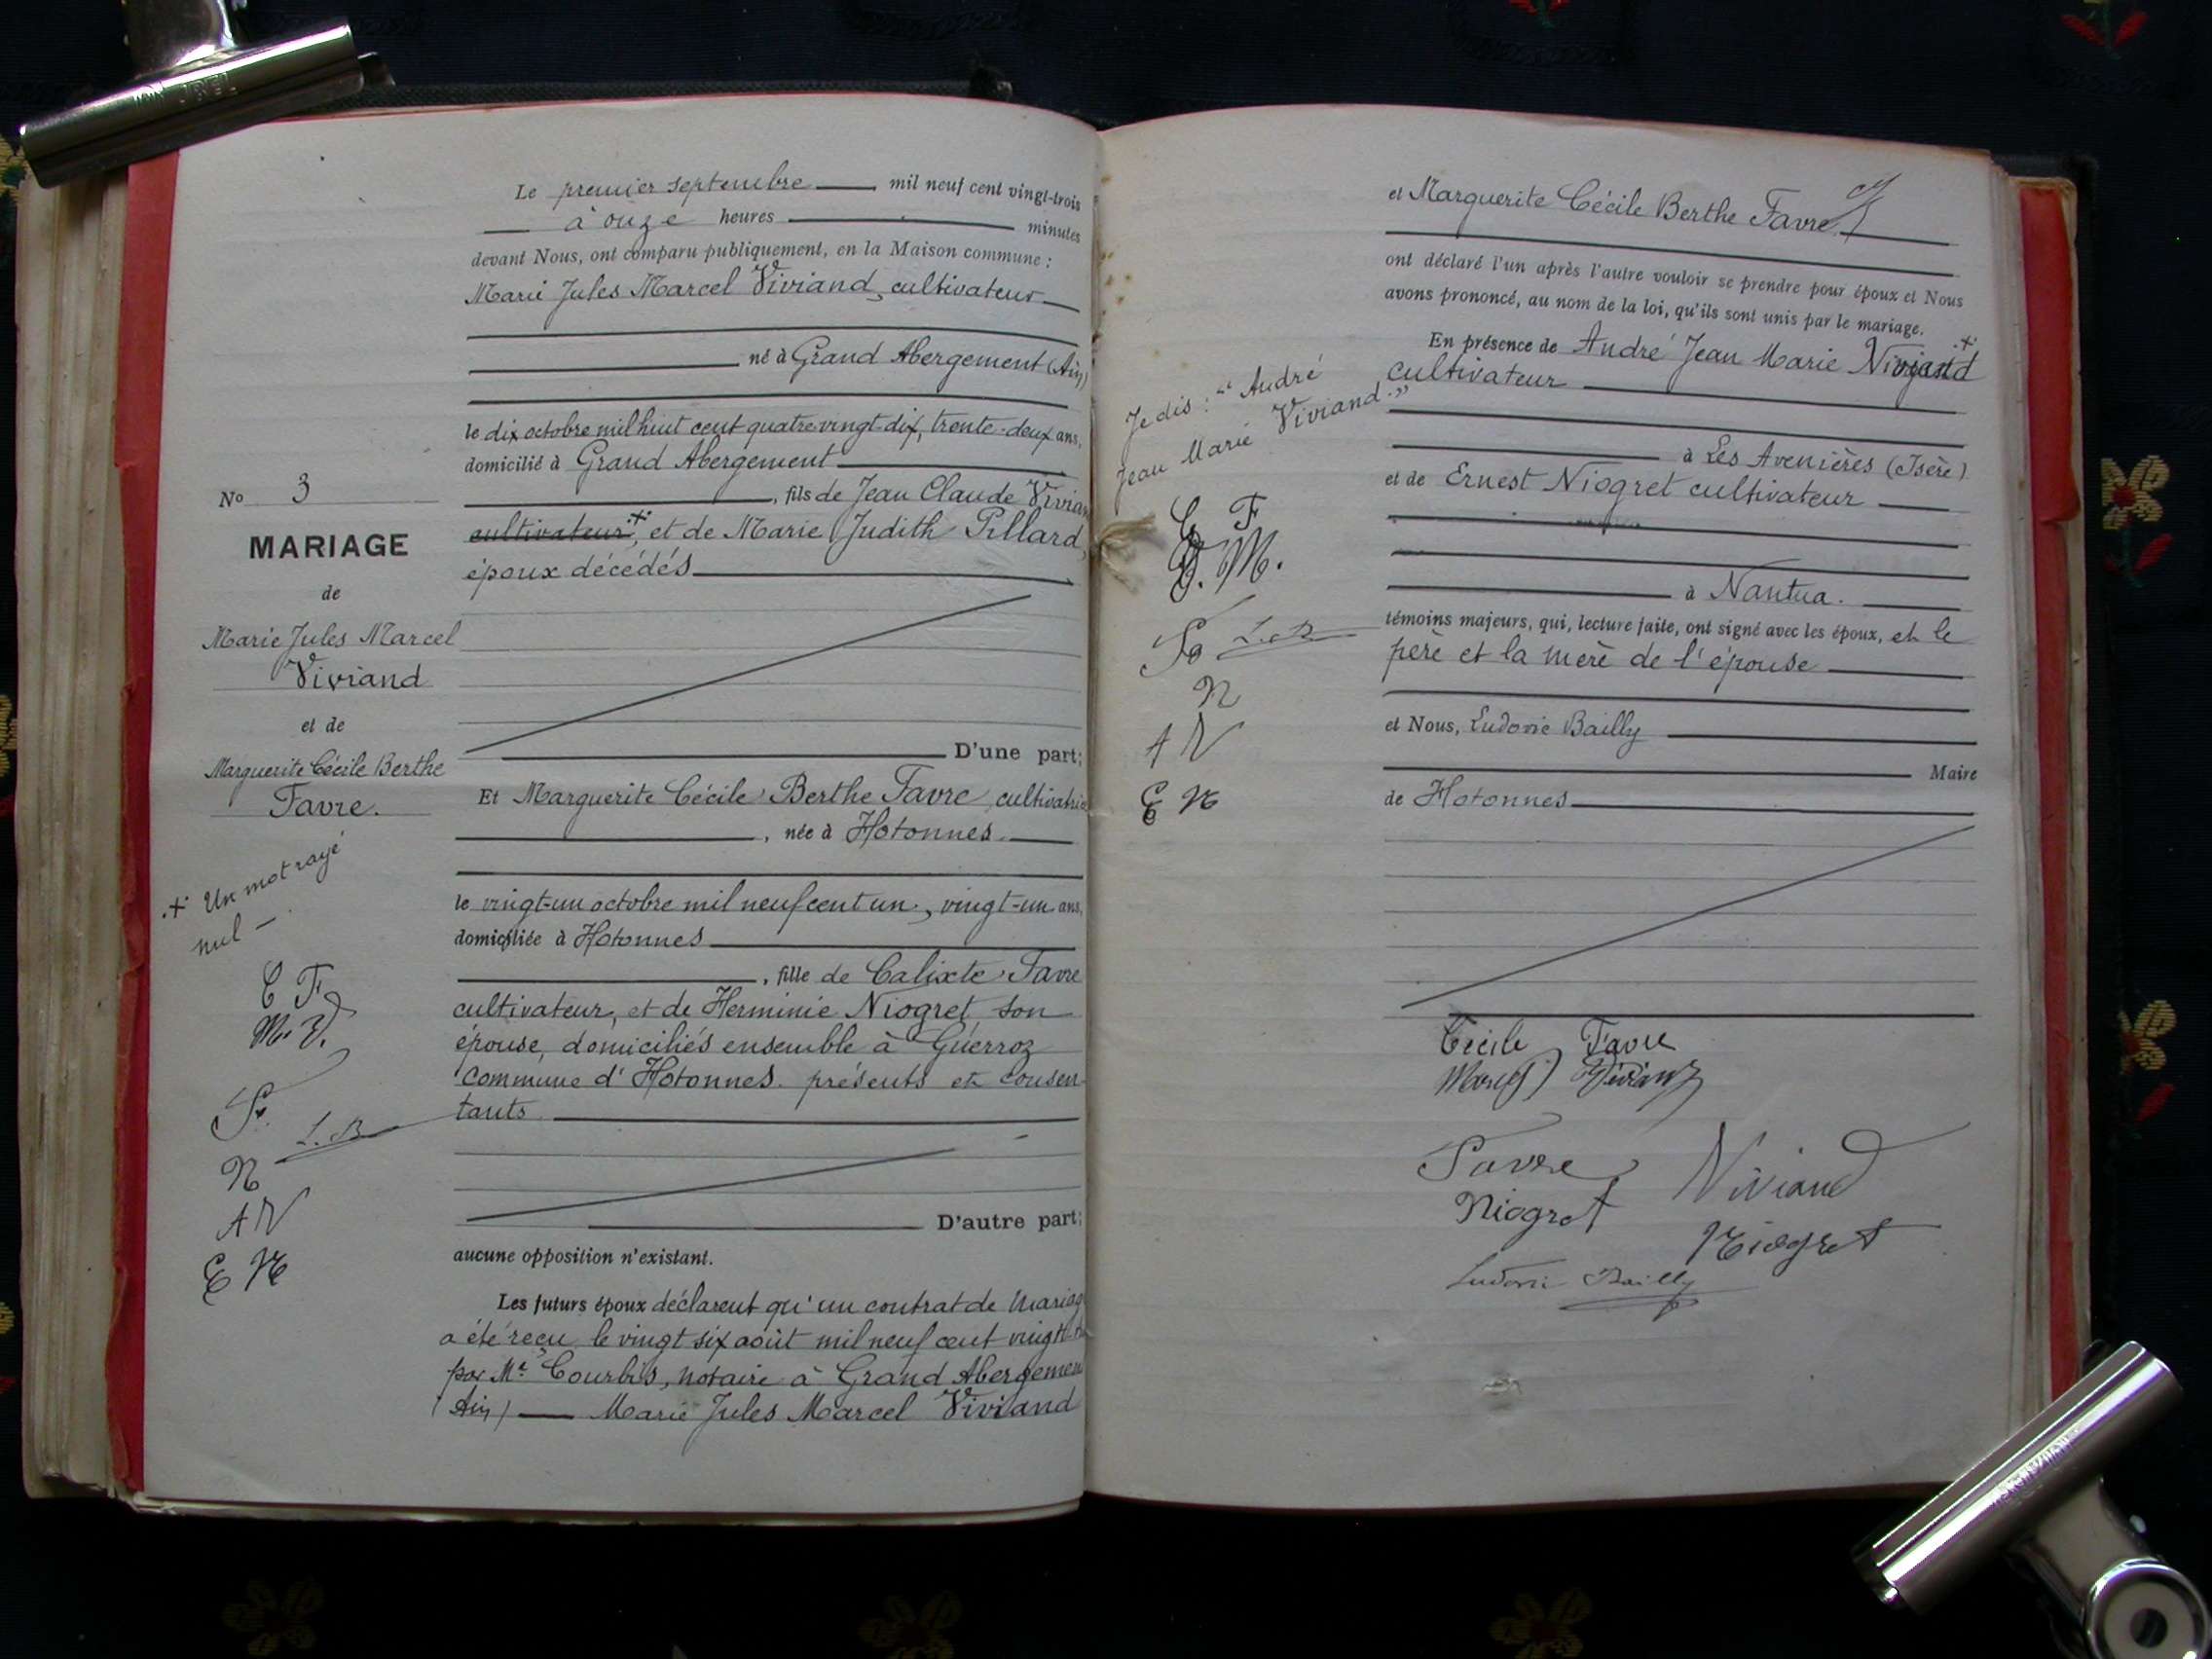 Le premier septembre mil neuf cent vingt-trois
à onze heures minutes
devant Nous, ont comparu publiquement, en la Maison commune :
Marie Jules Marcel Viviand, cultivateur
né à Grand Abergement (Ain)
le dix octobre mil huit cent quatre vingt-dix, trente-deux ans,
domicilié à Grand Abergement
, fils de Jean Claude Vivian
cultivateur .+. , et de Marie Judith Pillard,
époux décédés
D'une part;
Et Marguerite Cécile Berthe Favre, cultivatrice
, née à Hotonnes
le vingt-un octobre mil neuf cent un, vingt-un ans,
domiciliée à Hotonnes
, fille de Calixte Favre
cultivateur, et de Herminie Niogret son
épouse, domiciliés ensemble à Guerroz
commune d'Hotonnes. présents et consen-
tants
D'autre part;
aucune opposition n'existant.
Les futurs époux déclarent qu'un contrat de mariag
a été reçu le vingt six août mil neuf cent vingt-
par Me Courbis, notaire à Grand Abergemen
(Ain) Marie Jules Marcel Viviand
No 3
MARIAGE
de
Marie Jules Marcel
Viviand
et de
Marguerite Cécile Berthe
Favre.
.+. Un mot rayé
nul -
C F
M. V.
F.
L. B
N
A V
E N
et Marguerite Cécile Berthe Favre
ont déclaré l'un après l'autre vouloir se prendre pour époux et Nous
avons prononcé, au nom de la loi, qu'ils sont unis par le mariage.
En présence de André Jean Marie Viviand .+.
cultivateur
à Les Avenières (Isère)
et de Ernest Niogret cultivateur
à Nantua.
témoins majeurs, qui, lecture faite, ont signé avec les époux, et le
père et la mère de l'épouse
et Nous, Ludovic Bailly
Maire
de Hotonnes
Je dis : "André
Jean Marie Viviand."
C F
M.
L. B
N
A V
E N
Cécile Favre
Marcel Viviand
Favre
Viviand
Niogret
Niogret
Ludovic Bailly